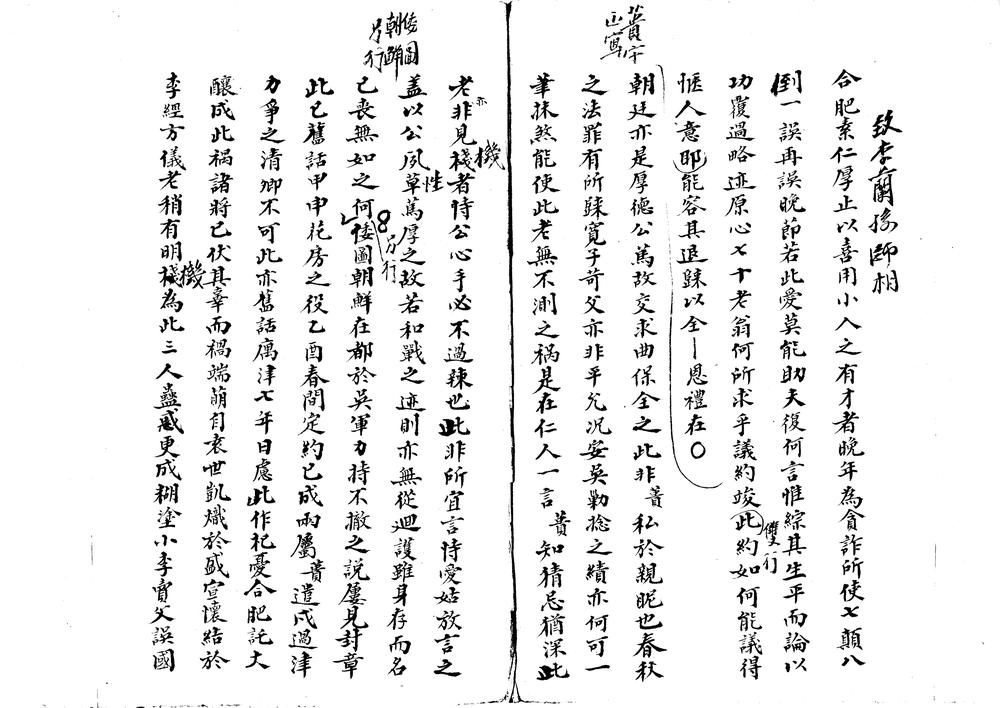 致李蘭孫師相
合肥素仁厚止以喜用小人之有才者晚年為貪詐所使七顛八
倒一誤再誤晚節若此愛莫能助夫復何言惟綜其生平而論以
功覆過略迹原心七十老翁何所求乎議約竣此約如何能議得
雙行
愜人意耶能容其退歸以全一恩禮在〇
朝廷亦是厚德公篤故交求曲保全之此非蕢私於親昵也春秋
之法罪有所歸寬子苛父亦非平允況安吳勤捻之績亦何可一
筆抹煞能使此老無不測之禍是在仁人一言蕢知猜忌猶深此
蕢字
正寫
老亦非見機者恃公心手必不過辣也此非所宜言恃愛姑放言之
機
蓋以公夙草篤厚之故若和戰之迹則亦無從迴護雖身存而名
性
已喪無如之何倭圖朝鮮在都於吳軍力持不撤之說屢見封章
另行
倭圖
朝鮮
另行
此已舊話甲申花房之役乙酉春間定約已成兩屬蕢遣戍過津
力爭之清卿不可此亦舊話寓津七年日慮此作杞憂合肥託大
釀成此禍諸將已伏其辜而禍端萌自袁世凱熾於盛宣懷結於
李經方儀老稍有明機為此三人蠱惑更成糊塗小李賣父誤國
機